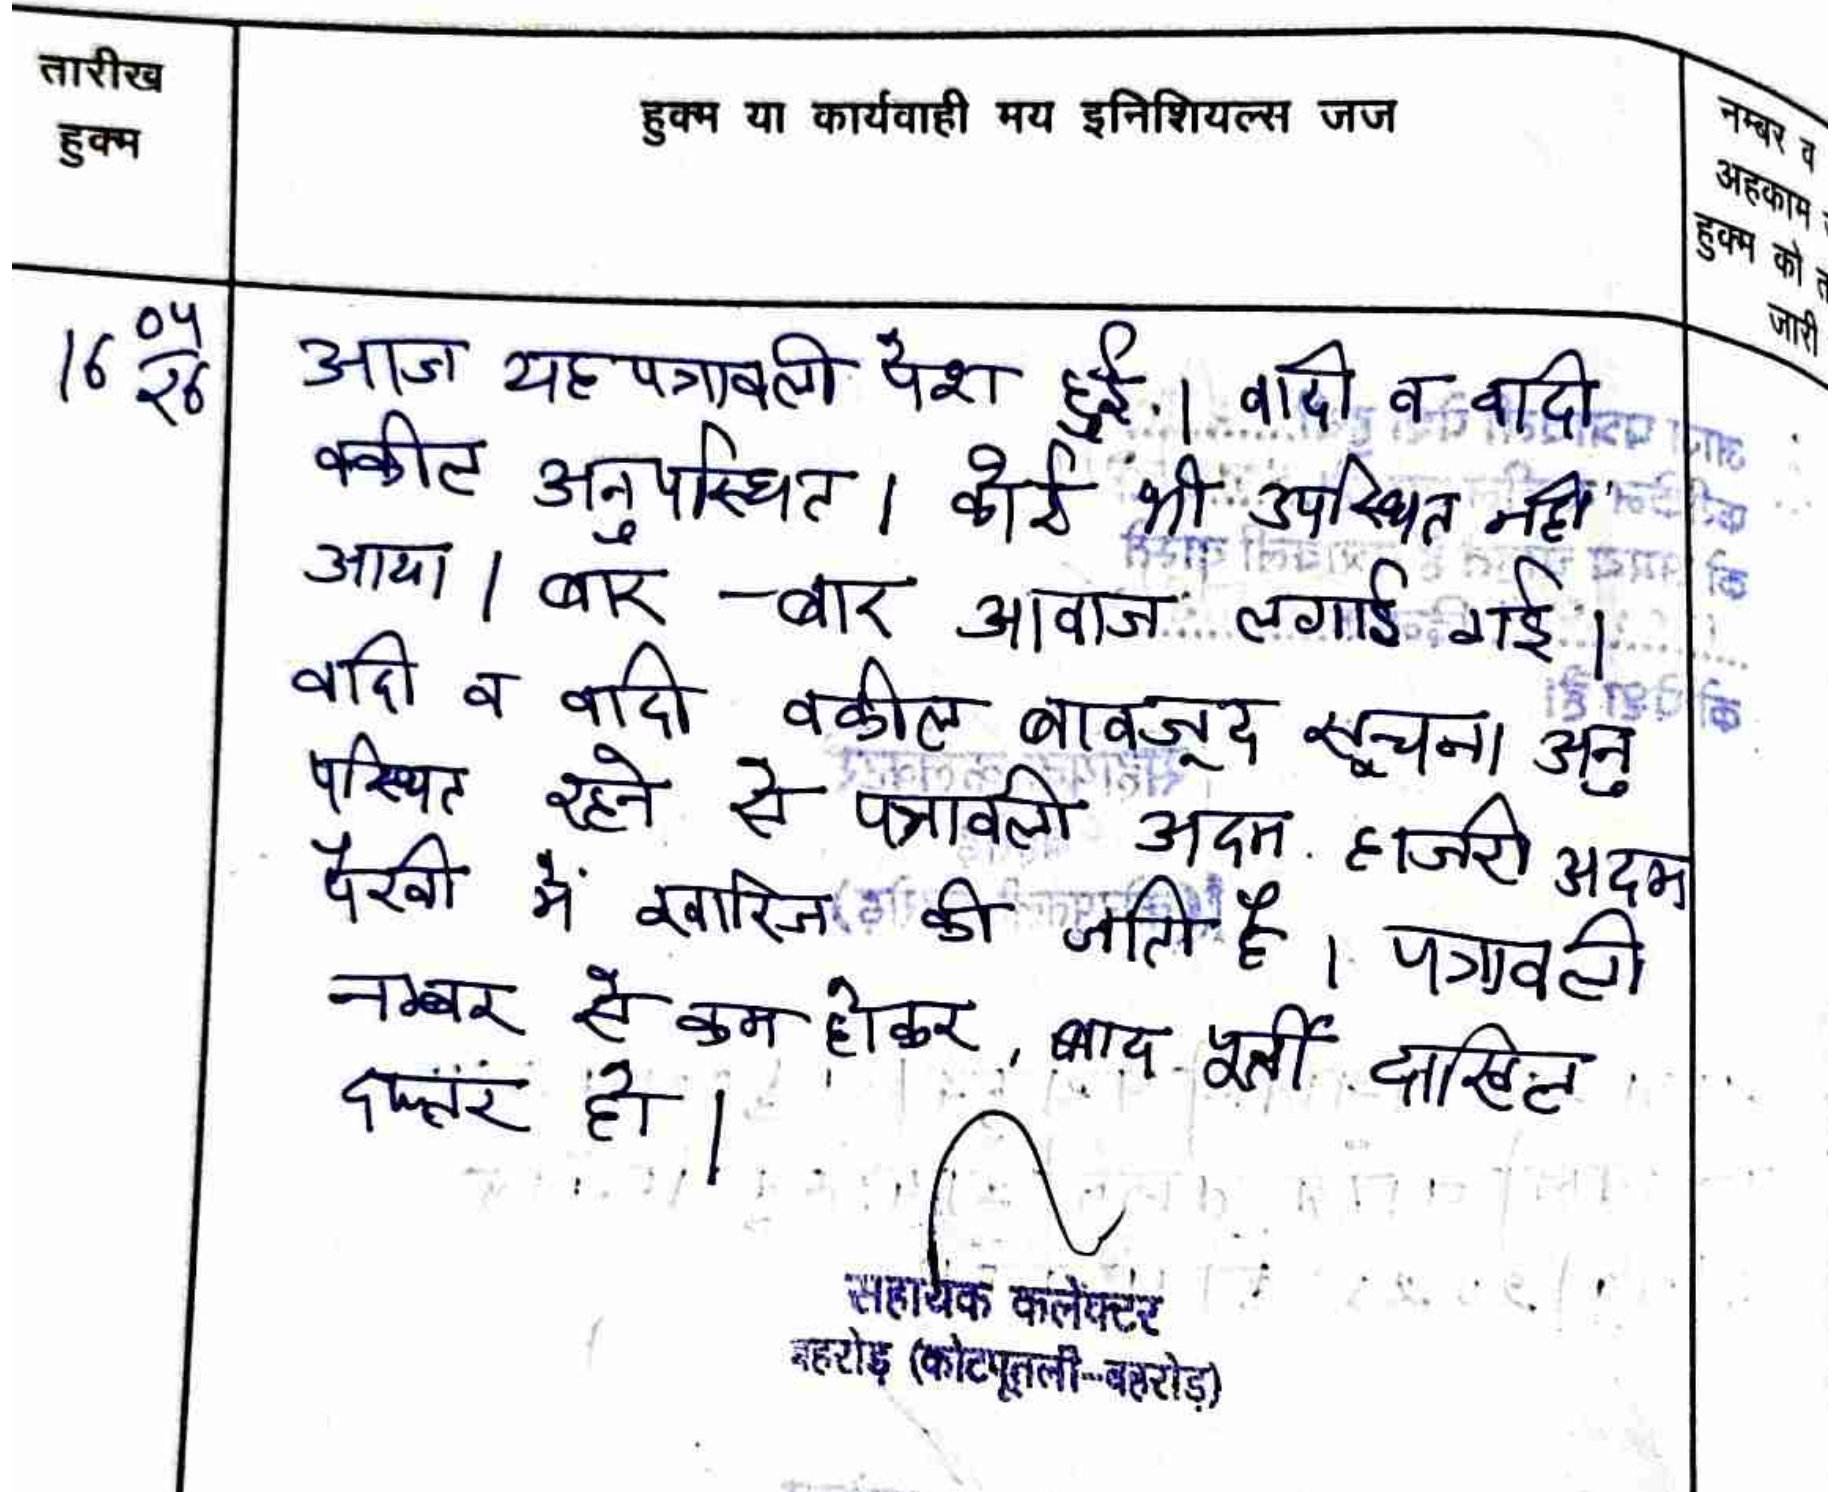 तारीख
हुक्म
हुक्म या कार्यवाही मय इनिशियल्स जज
नम्बर व
अहकाम
हुक्म को
जारी
16 04/26
आज यह पत्रावली पेश हुई। वादी व वादी
वकील अनुपस्थित। कोई भी उपस्थित नहीं
आया। बार-बार आवाज लगाई गई।
वादी व वादी वकील बावजूद सूचना अनु
पस्थित रहने से पत्रावली अदम हाजरी अदम
पैरवी में खारिज की जाती है। पत्रावली
नम्बर से कम होकर, बाद पूर्ती दाखिल
दफ्तर हो।
सहायक कलेक्टर
बहरोड़ (कोटपूतली-बहरोड़)